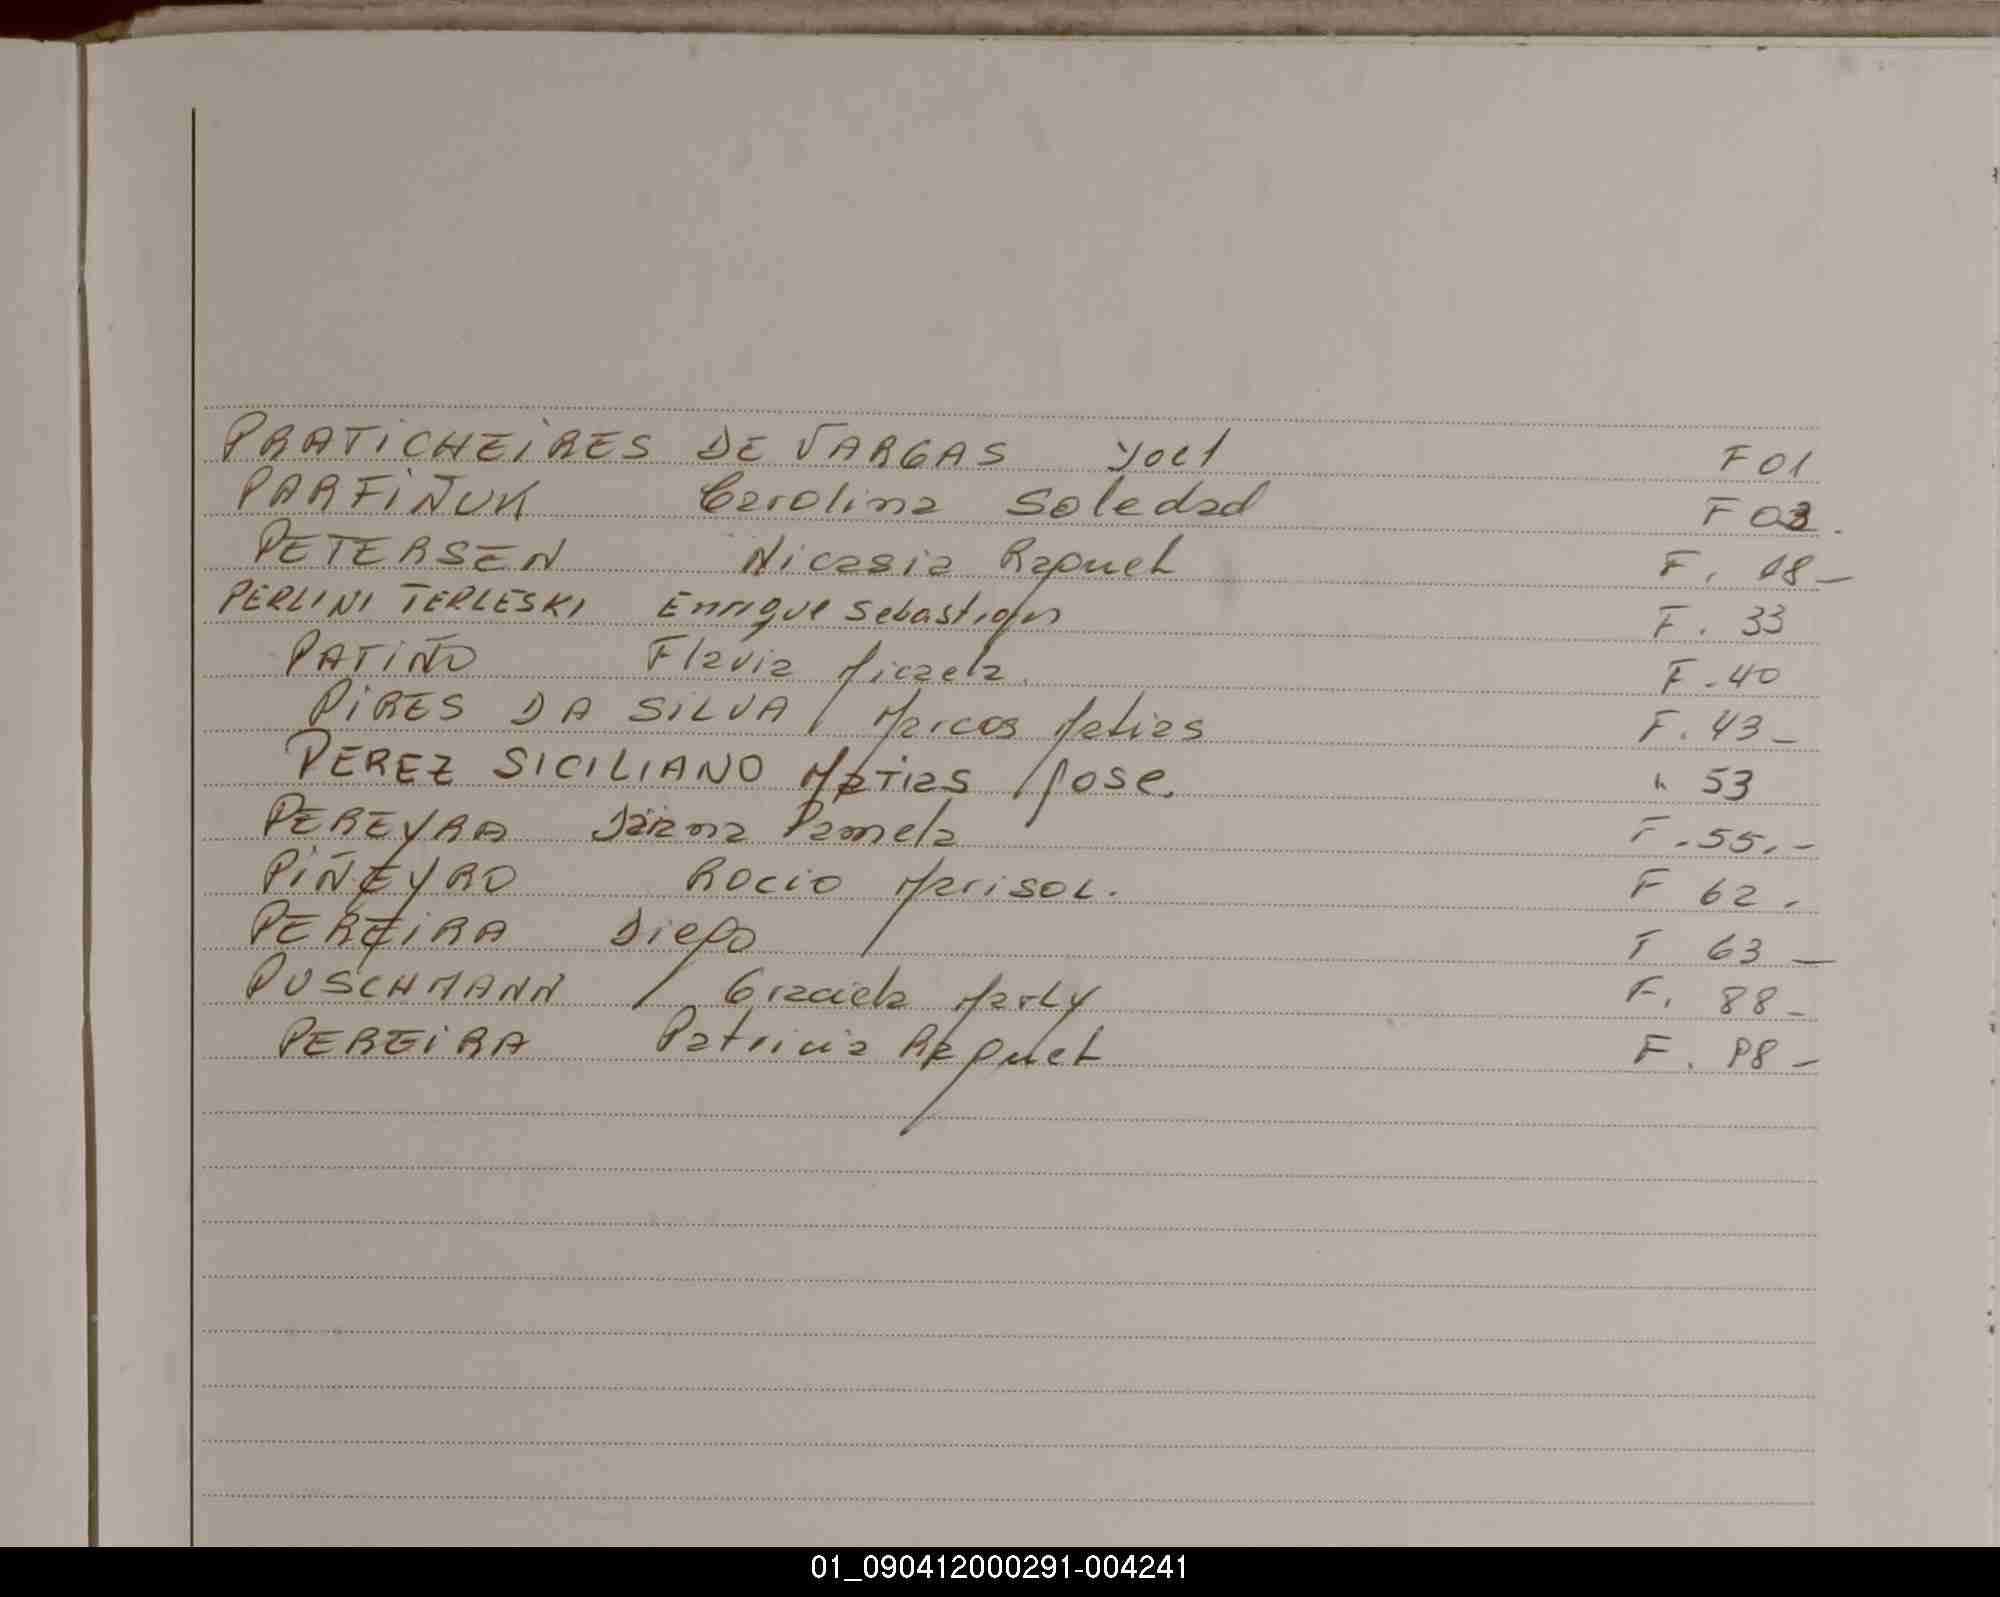 PRATICHEIRES DE VARGAS Yoel F 01
PARFIÑUK Carolina Soledad F 03.
PETERSEN Nicasia Raquel F. 18-
PERLINI TERLESKI Enrrique Sebastian F. 33
PATIÑO Flavia Micaela. F.40
PIRES DA SILVA Marcos Matias F. 43-
PEREZ SICILIANO Matias Jose. " 53
PEREYRA Daiana Pamela F.55.-
PIÑEYRO Rocio Marisol. F 62.
PEREIRA Diego F 63-
PUSCHMANN Graciela Marly F. 88-
PEREIRA Patricia Raquel F. 98-
01_090412000291-004241